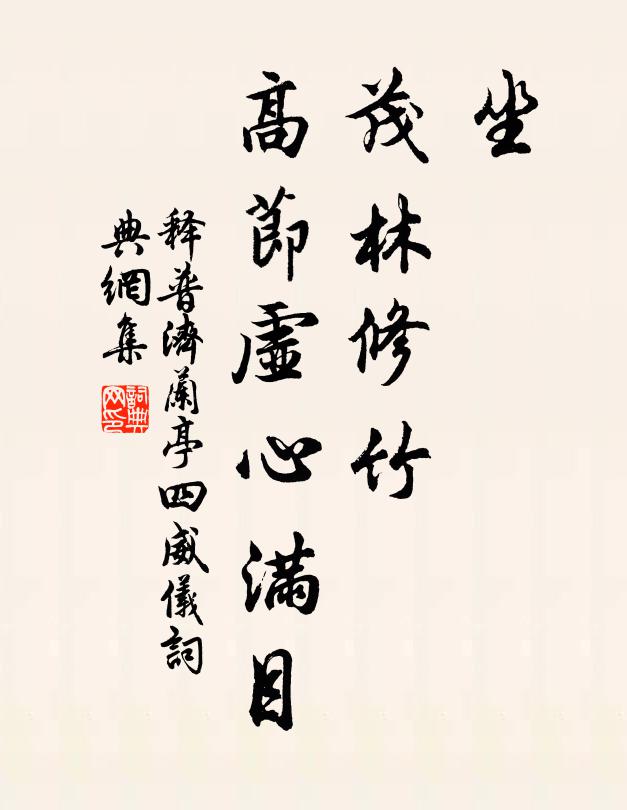 坐
茂林修竹
高節虛心滿目
释普濟蘭亭四威儀詞
典網集
詞典
网印